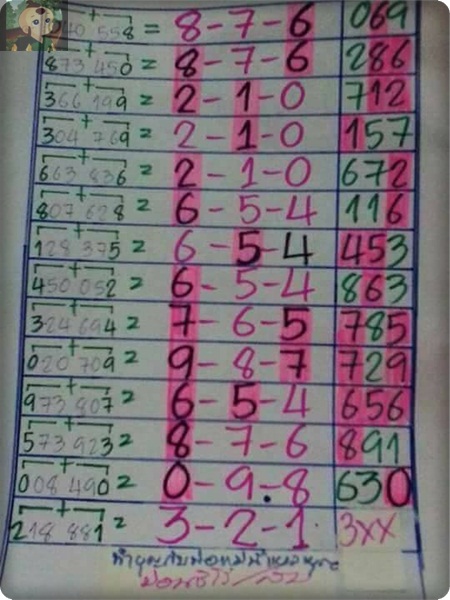 40 558 = 8-7-6 069
873 450 = 8-7-6 286
366 199 = 2-1-0 712
304 769 = 2-1-0 157
663 836 = 2-1-0 672
807 628 = 6-5-4 116
128 375 = 6-5-4 453
450 052 = 6-5-4 863
324 694 = 7-6-5 785
020 709 = 9-8-7 729
973 807 = 6-5-4 656
573 923 = 8-7-6 891
008 490 = 0-9-8 630
218 881 = 3-2-1 3xx